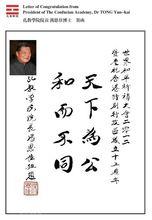 Letter of Congratulation from
President of The Confucian Academy, Dr TONG Yun-kai
孔教學院院長湯恩佳博士 賀函
世界和平祈禱大會二零一二
暨慶祝香港特別行政區成立十五周年
天下為公
和而不同
孔教學院院長湯恩佳題